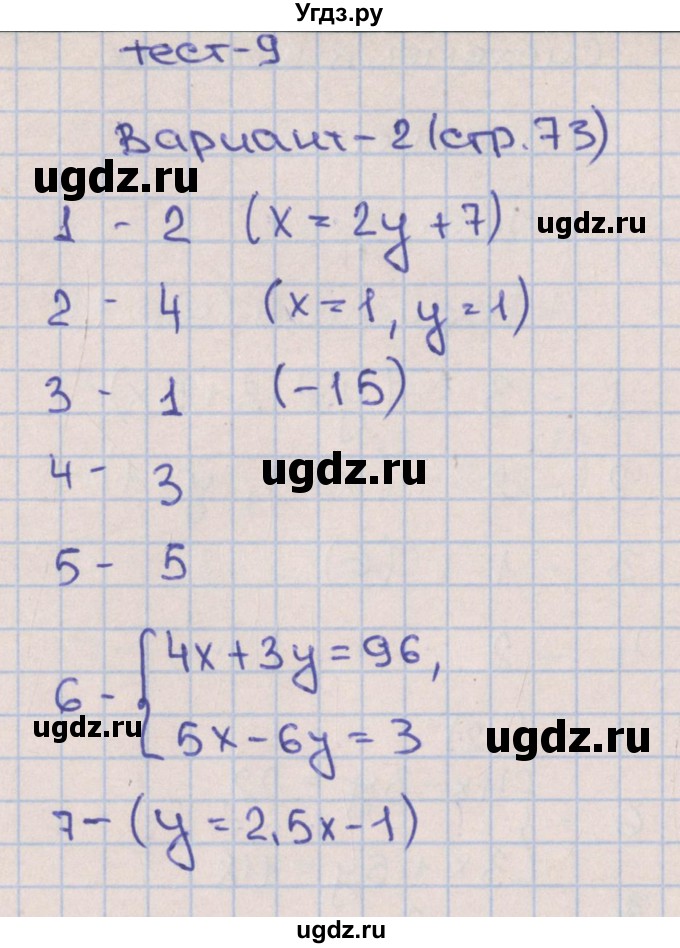 Угдз.ру
тест-9
Вариант-2 (стр.73)
ugdz.ru
1 - 2 (x = 2y + 7)
ugdz.ru
2 - 4 (x = 1, y = 1)
3 - 1 (-15)
4 - 3
ugdz.ru
5 - 5
6 - { 4x + 3y = 96,
5x - 6y = 3
ugdz.ru
ugdz.ru
7 - (y = 2,5x - 1)
ugdz.ru